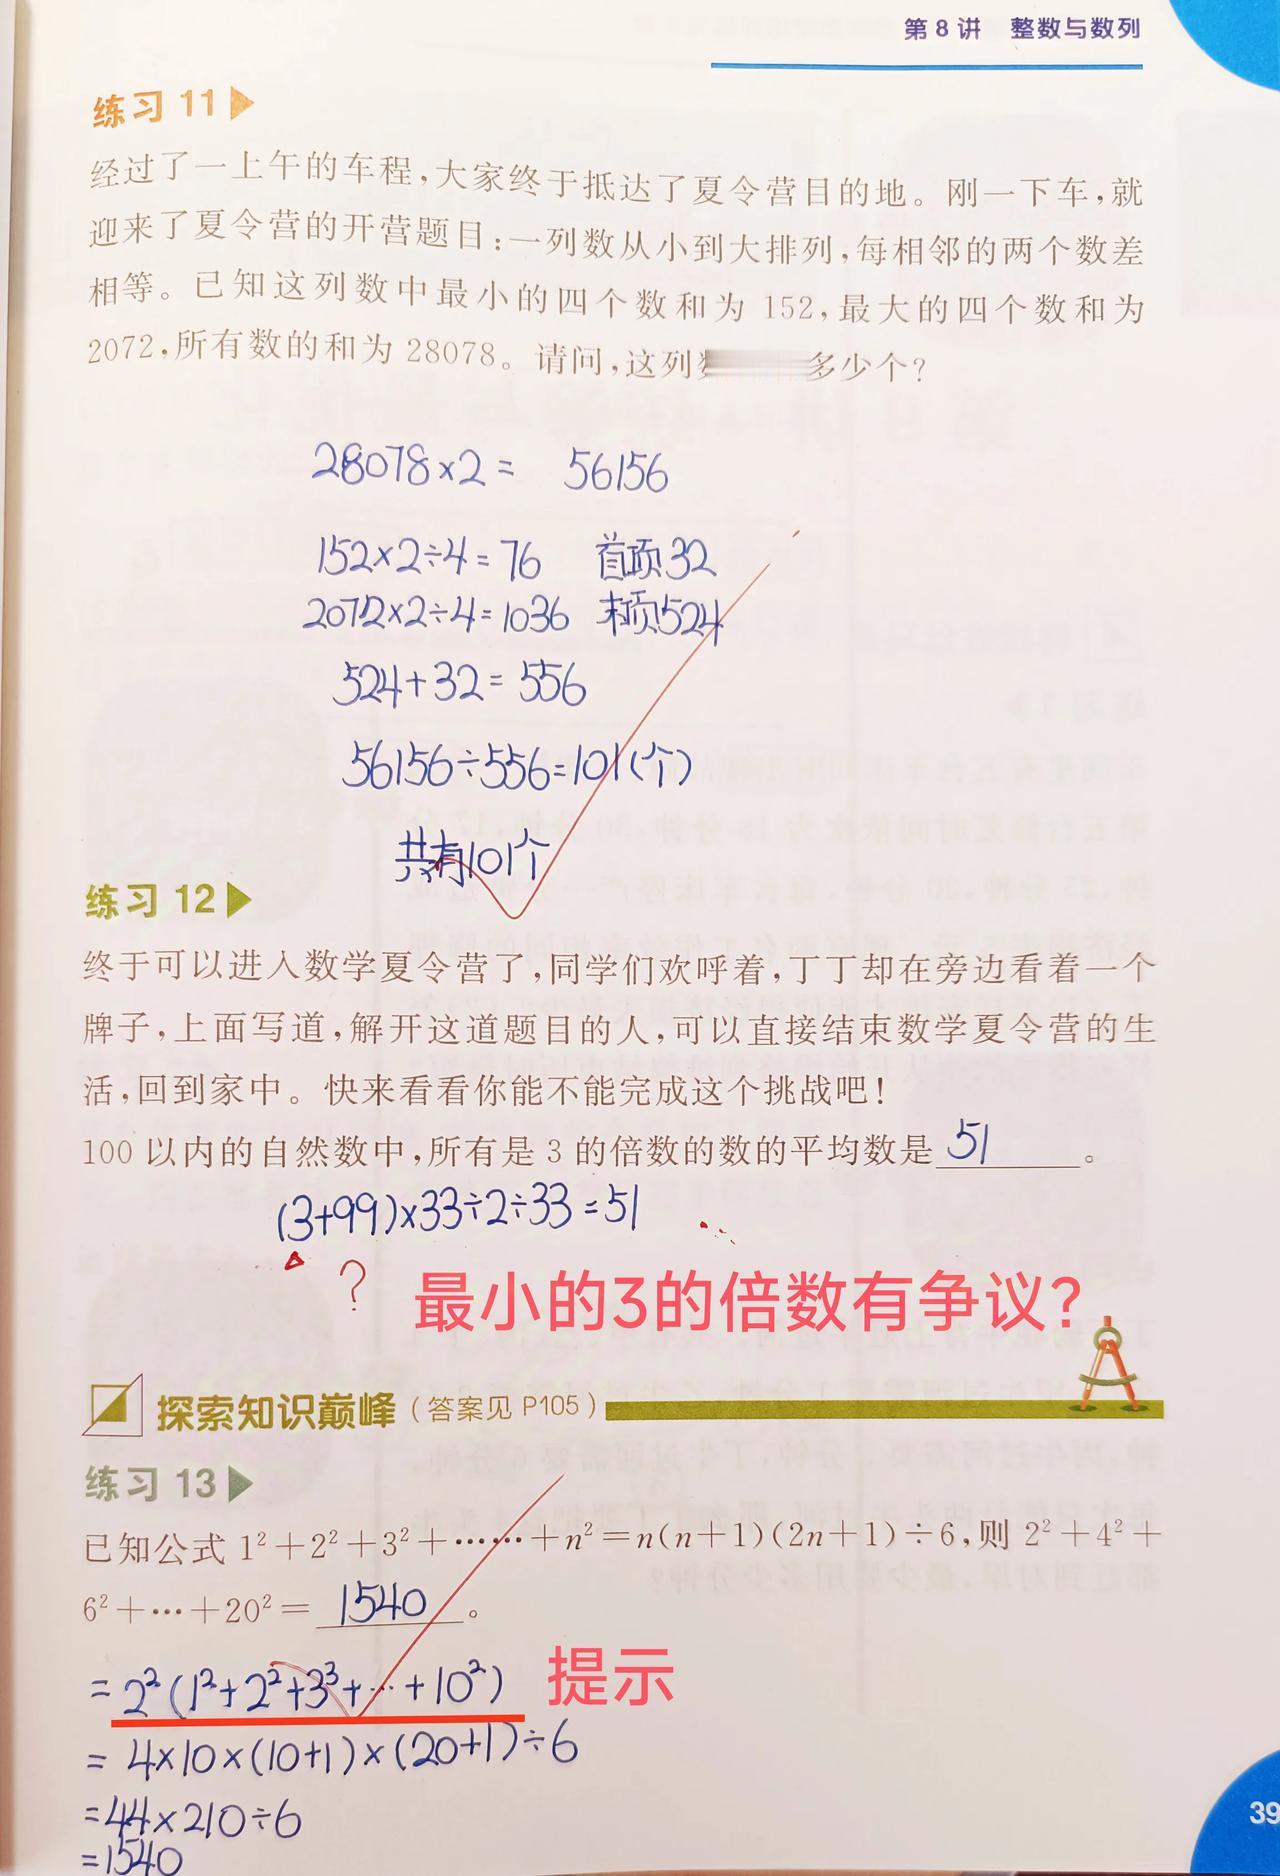 第 8 讲 整数与数列
练习 11
经过了一上午的车程,大家终于抵达了夏令营目的地。刚一下车,就
迎来了夏令营的开营题目:一列数从小到大排列,每相邻的两个数差
相等。已知这列数中最小的四个数和为 152,最大的四个数和为
2072,所有数的和为 28078。请问,这列 多少个?
28078×2= 56156
152×2÷4=76 首项32
2072×2÷4=1036 末项524
524+32=556
56156÷556=101(个)
共有101个
练习 12
终于可以进入数学夏令营了,同学们欢呼着,丁丁却在旁边看着一个
牌子,上面写道,解开这道题目的人,可以直接结束数学夏令营的生
活,回到家中。快来看看你能不能完成这个挑战吧!
100 以内的自然数中,所有是 3 的倍数的数的平均数是 51 。
(3+99)×33÷2÷33=51
?
最小的3的倍数有争议?
探索知识巅峰(答案见 P105)
练习 13
已知公式 1²+2²+3²+……+n²=n(n+1)(2n+1)÷6,则 2²+4²+
6²+…+20²= 1540 。
=2²(1²+2²+3³+…+10²) 提示
=4×10×(10+1)×(20+1)÷6
=44×210÷6
=1540
39